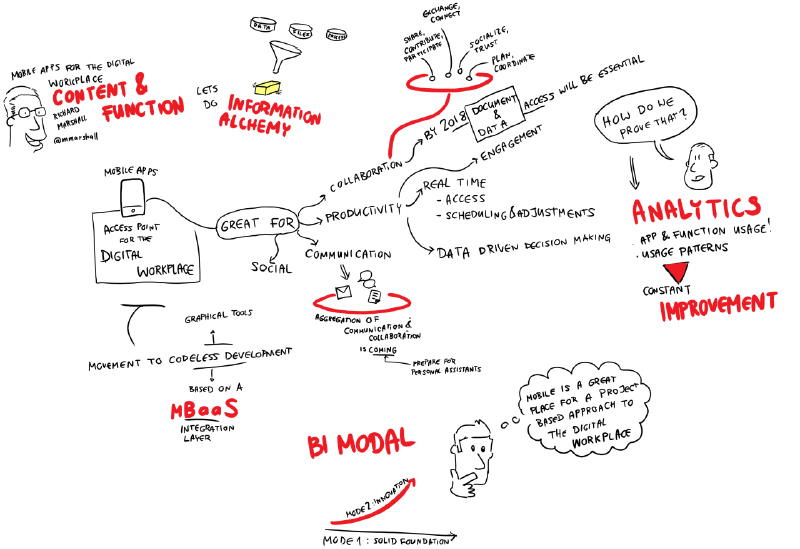 MOBILE APPS FOR THE DIGITAL
WORKPLACE
CONTENT &
FUNCTION
RICHARD
MARSHALL
@mmarshall
LETS
DO
INFORMATION
ALCHEMY
DATA
FILES
SHARE,
CONTRIBUTE,
PARTICIPATE
EXCHANGE,
CONNECT
SOCIALIZE,
TRUST
PLAN,
COORDINATE
MOBILE APPS
ACCESS POINT
FOR THE
DIGITAL
WORKPLACE
GREAT FOR
COLLABORATION
BY 2018
DOCUMENT
&
DATA
ACCESS WILL BE ESSENTIAL
PRODUCTIVITY
ENGAGEMENT
REAL TIME
- ACCESS
- SCHEDULING & ADJUSTMENTS
DATA DRIVEN DECISION MAKING
COMMUNICATION
SOCIAL
AGGREGATION OF
COMMUNICATION &
COLLABORATION
IS COMING
PREPARE FOR
PERSONAL ASSISTANTS
HOW DO WE
PROVE THAT?
ANALYTICS
. APP & FUNCTION USAGE!
. USAGE PATTERNS
CONSTANT
IMPROVEMENT
GRAPHICAL TOOLS
MOVEMENT TO CODELESS DEVELOPMENT
BASED ON A
MBaaS
INTEGRATION
LAYER
BI MODAL
MODE 2: INNOVATION
MODE 1: SOLID FOUNDATION
MOBILE IS A GREAT
PLACE FOR A PROJECT
BASED APPROACH TO
THE DIGITAL
WORKPLACE